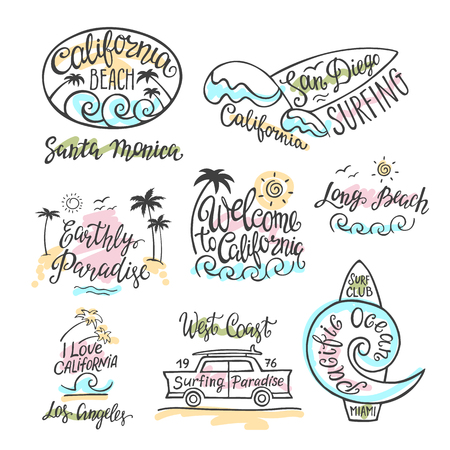 California
BEACH
Santa Monica
San Diego
SURFING
California
Earthly
Paradise
Welcome
to
California
Long Beach
I LOVE
CALIFORNIA
Los Angeles
West Coast
19 76
Surfing Paradise
SURF
CLUB
Pacific Ocean
MIAMI